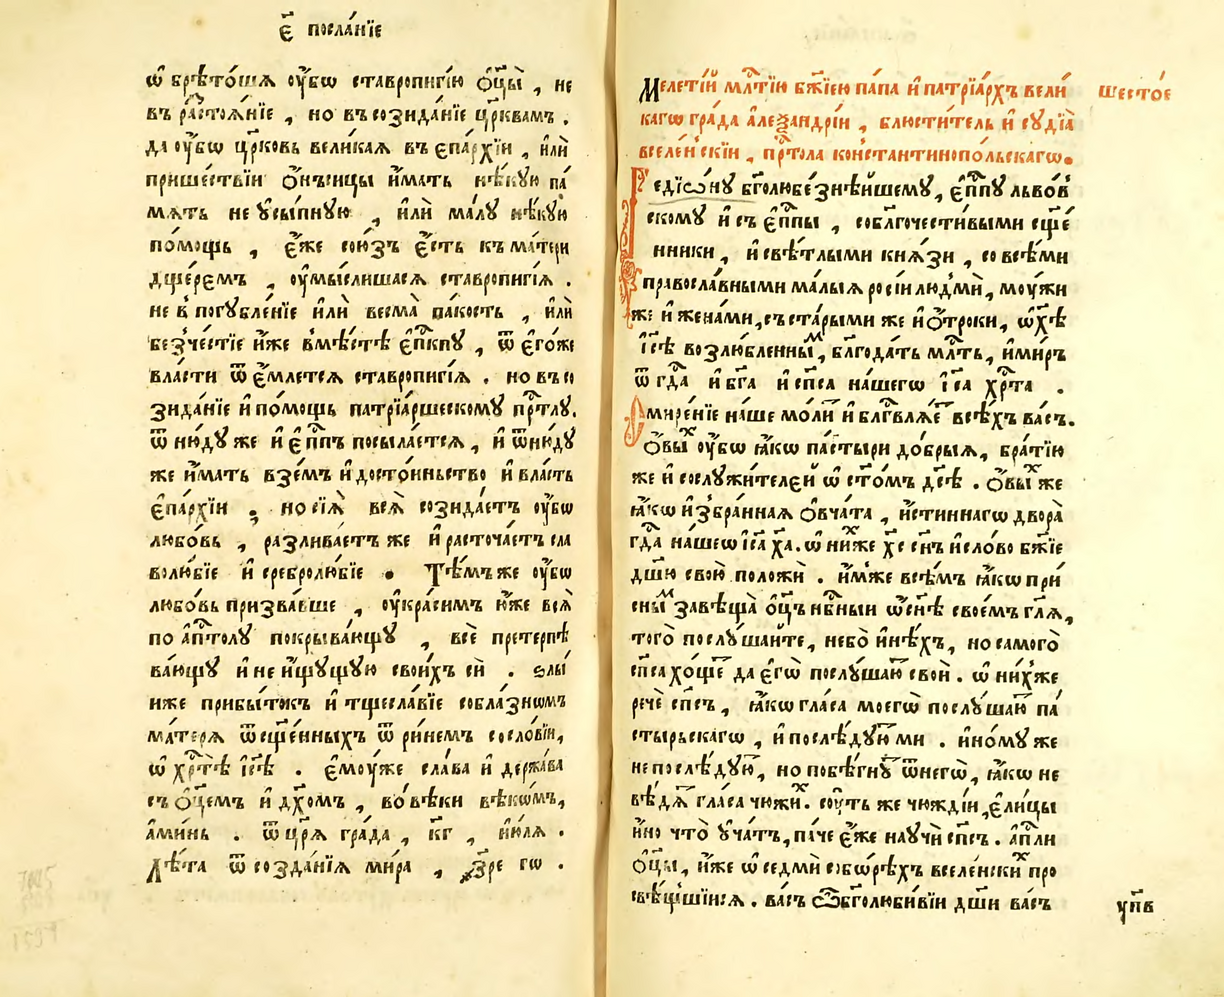 є҃ посла́нїє
ѡ҆брѣто́шѧ ᲂу҆́бѡ ставропигі́ю ѻ҆ц҃ы̀, не
въ растоѧ́нїе, но въ созида́нїе цр҃квамъ.
да ᲂу҆́бѡ цр҃ковь великаѧ въ є҆па́рхїи, и҆лѝ
прише́ствїи ѻ҆́нъсицы и҆́мать нѣ́кую па́
мѧть не ѹ҆сы́пную, и҆лѝ ма́лу нѣ́кую
по́мощь, є҆́же сою́зъ є҆́сть къ ма́тери
дще́ремъ, ᲂу҆мы́слишасѧ ставропигі́ѧ.
не в̾ погꙋбле́нїе и҆лѝ весма̀ па́кость, и҆лѝ
безче́стїе и҆́же вмѣ́стѣ є҆пⷭ҇кпꙋ, ѿ є҆го́же
вла́сти ѿе́млетсѧ ставропигі́ѧ. но въ со
зида́нїе и҆ по́мощь патрїа́ршескомꙋ прⷭ҇тлꙋ.
ѿ нюдꙋже и҆ є҆пⷭ҇пъ посыла́етсѧ, и҆ ѿню́дꙋ
же и҆́мать взе́мъ и҆ досто́иньство и҆ вла́сть
є҆па́рхїи; но сїѧ̀ всѧ̀ созида́етъ ᲂу҆́бѡ
любо́вь, разлива́етъ же и҆ расточа́етъ сла
волю́бїе и҆ сребролю́бїе. Тѣ́мъже ᲂу҆́бѡ
любо́вь призва́вше, ᲂу҆кра́симъ ю҆́же всѧ̀
по а҆пⷭ҇толꙋ покрыва́ющꙋ, всѐ претерпѣ
ва́ющꙋ и҆ не и҆́щꙋщꙋю свои́хъ сѝ. ѕлы́
иже прибы́токъ и҆ тщесла́вїе собла́знѡмъ
ма́терѧ ѿ сщ҃е́нныхъ ѿри́немъ сосло́вїи,
ѡ҆ хрⷭ҇тѣ̀ і҆с҃ѣ. є҆мᲂу́же сла́ва и҆ держа́ва
съ ѻ҆ц҃емъ и҆ дх҃омъ, во́ вѣки вѣкѡ́мъ,
а҆ми́нь. ѿ цр҃ѧ гра́да, кг҃, ію́лѧ.
Лѣ́та ѿ созда́нїѧ ми́ра, ҂зр҃е гѡ.
шесто́е
Меле́тїй млⷭ҇тїю бж҃їею па́па и҆ патрїа́рхъ вели́
кагѡ гра́да а҆леѯандрі́и, блюсти́тель и҆ сᲂудїѧ̀
вселе́нскїи, прⷭ҇тола ко́нстантинопо́льскагѡ.
Гедїѡ́нꙋ бг҃олюбе́знѣишемꙋ, є҆пⷭ҇пꙋ льво́в
скомꙋ и҆ съ є҆пⷭ҇пы, со бл҃гочести́выми сщ҃е́
нники, и҆ свѣ́тлыми кнѧ́зи, со всѣ́ми
правосла́вными ма́лыѧ росі́и людмѝ, мᲂу́жи
же и҆ жена́ми, съ ста́рыми же и҆ ѻ҆́троки, ѡ҆ х҃ѣ
і҆с҃ѣ возлю́бленныⷨ, бл҃года́ть млⷭ҇ть, и҆ ми́ръ
ѿ гдⷭ҇а и҆ бг҃а и҆ сп҃са на́шегѡ і҆с҃а хрⷭ҇та.
Смире́нїе на́ше мо́лиⷮ и҆ блгⷭ҇влѧ́еⷮ всѣ́хъ ва́съ.
Ѻ҆́выⷯ ᲂу҆́бѡ ꙗ҆́кѡ па́стыри до́брыѧ, бра́тїю
же и҆ сослꙋжи́телей ѡ҆ ст҃о́мъ дс҃ѣ. ѻ҆́выⷯ же
ꙗ҆́кѡ и҆збра́ннаѧ ѻ҆вча́та, и҆́стиннагѡ двора̀
гдⷭ҇а на́шеѡ і҆с҃а х҃а. ѡ҆ ниⷯже хс҃ сн҃ъ и҆ сло́во бж҃їе
дш҃ю свою̀ положѝ. и҆́мже всѣ́мъ ꙗ҆́кѡ при́
сныⷨ завѣща̀ ѻ҆ц҃ъ нбⷭ҇ныи ѡ҆ сн҃ѣ свое́мъ гл҃ѧ,
того̀ послꙋ́шаите, небо̀ и҆нѣ́хъ, но самого̀
сп҃са хо́щеⷮ да є҆гѡ̀ послꙋ́шаюⷮ своѝ. ѡ҆ ни́хже
речѐ сп҃съ, ꙗ҆́кѡ гла́са моегѡ̀ послꙋ́шаюⷮ па́
стырьскагѡ, и҆ послѣ́дꙋюⷮ ми. и҆но́мꙋ же
не послѣ́дꙋюⷮ, но побѣ́гнꙋⷮ ѿ негѡ̀, ꙗ҆́кѡ не
вѣ́дѧⷮ гла́са чюжи́ⷯ. сᲂу́ть же чюжді́и, є҆ли́цы
и҆́но что̀ ꙋ҆ча́тъ, па́че є҆́же наꙋчѝ сп҃съ. а҆пⷭ҇ли
ѻ҆ц҃ы, и҆́же ѡ҆ седмѝ собѡ́рѣхъ вселе́нскиⷯ про
свѣ́щшїисѧ. ва́съ ѽ бг҃олюби́вїи дш҃и ва́съ
ѹп҃в